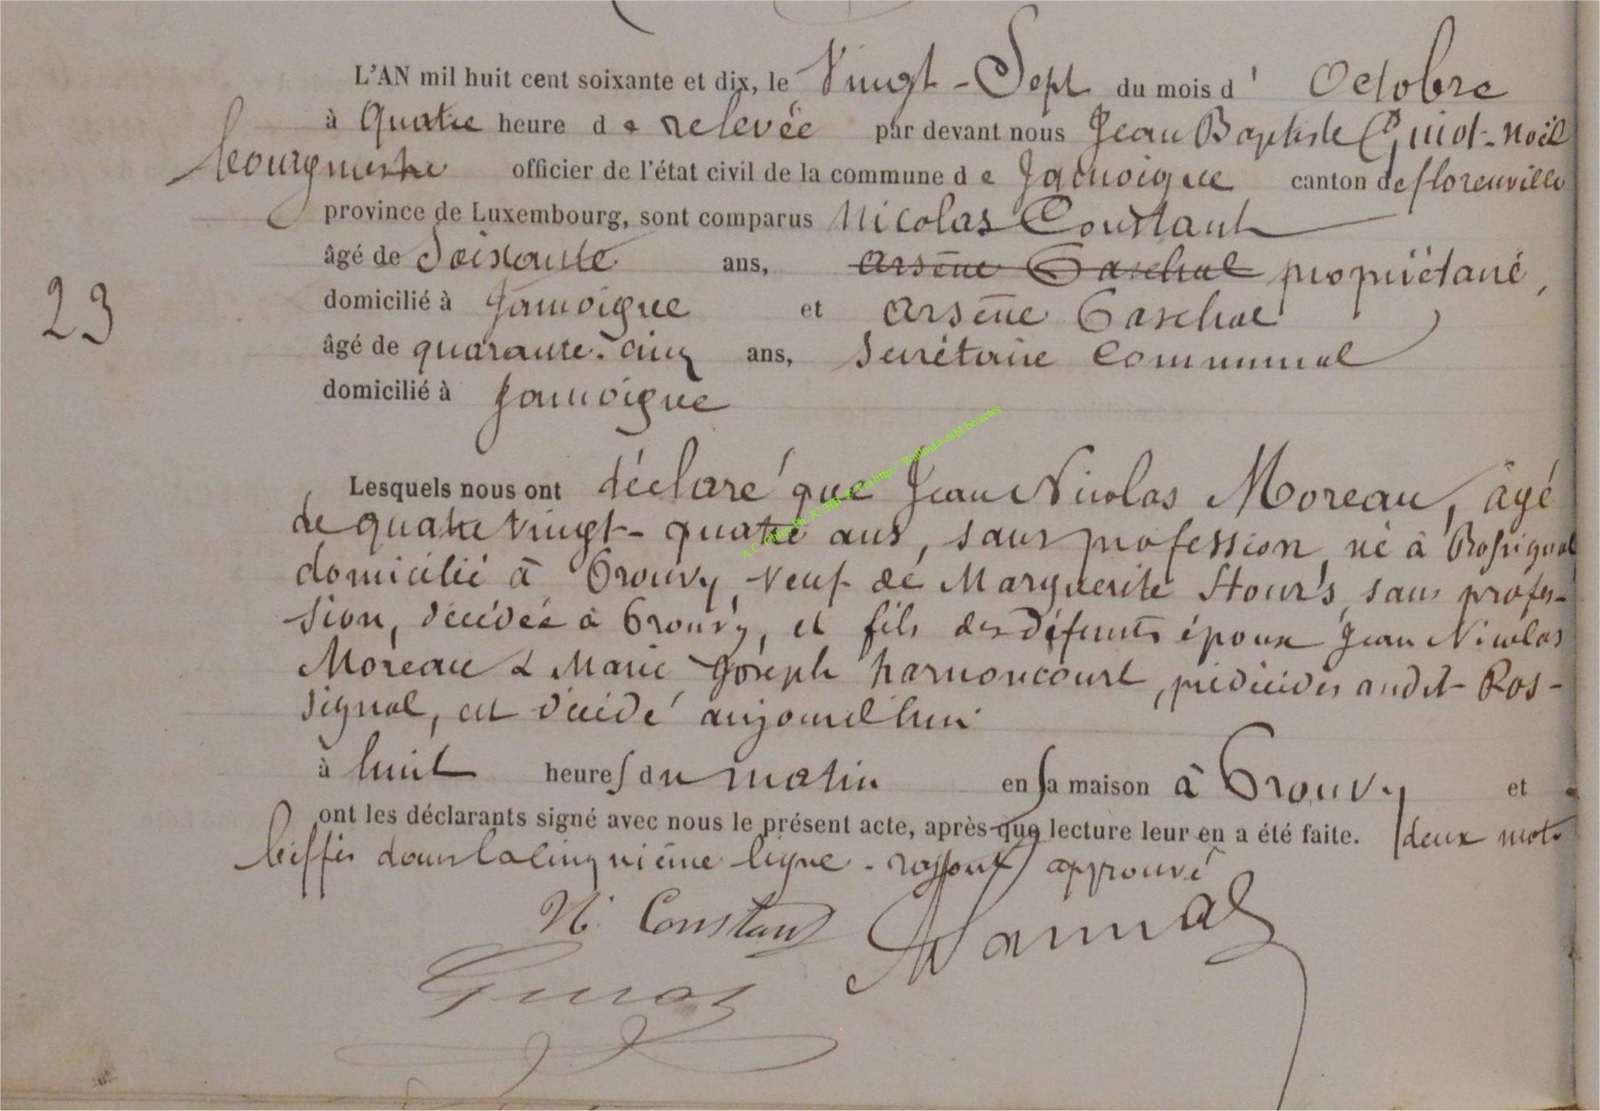 L'AN mil huit cent soixante et dix, le Vingt-Sept du mois d' Octobre
à Quatre heure de relevée par devant nous Jean Baptiste Guiot-Noël
bourgmestre officier de l'état civil de la commune de Jamoigne canton de florenville
province de Luxembourg, sont comparus Nicolas Constant
âgé de Soixante ans, Arsène Paschal propriétaire,
23
domicilié à Jamoigne et Arsène Paschal
âgé de quarante-cinq ans, Secrétaire Communal
domicilié à Jamoigne
Lesquels nous ont déclaré que Jean Nicolas Moreau, âgé
de quatre vingt-quatre ans, sans profession, né à Rossignol
domicilié à Prouvy, veuf de Marguerite sans profes-
sion, décédée à Prouvy, et fils des défunts époux Jean Nicolas
Moreau & Marie Joseph harnoncourt, prédécédés audit Ros-
signol, est décédé aujourd'hui
à huit heures du matin en sa maison à Prouvy et
ont les déclarants signé avec nous le présent acte, après que lecture leur en a été faite. deux mots
biffés dans la cinquième ligne approuvé
N. Constant
Guiot